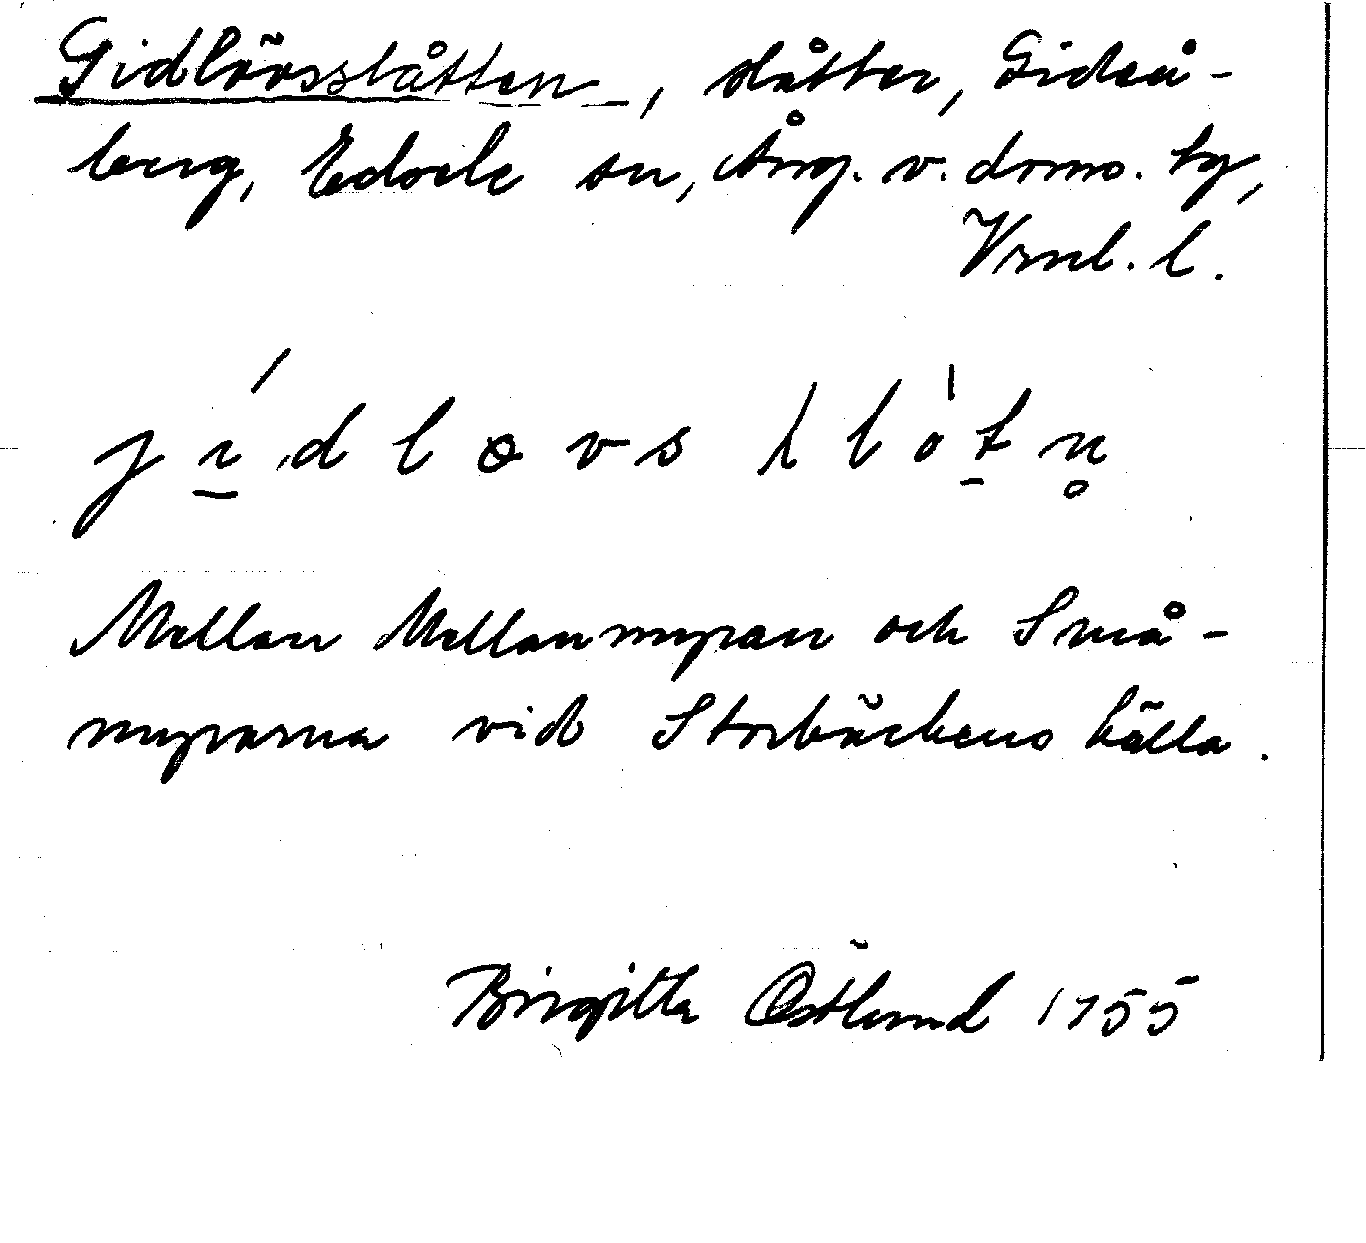 Gidlövsslåtten, slåtter, Gideå-
berg, Edsele sn, Ång. v. doms. tg,
Vrnl. l.
Mellan Mellanmyran och Små-
myrarna vid Storbäckens källa.
Birgitta Östlund 1955